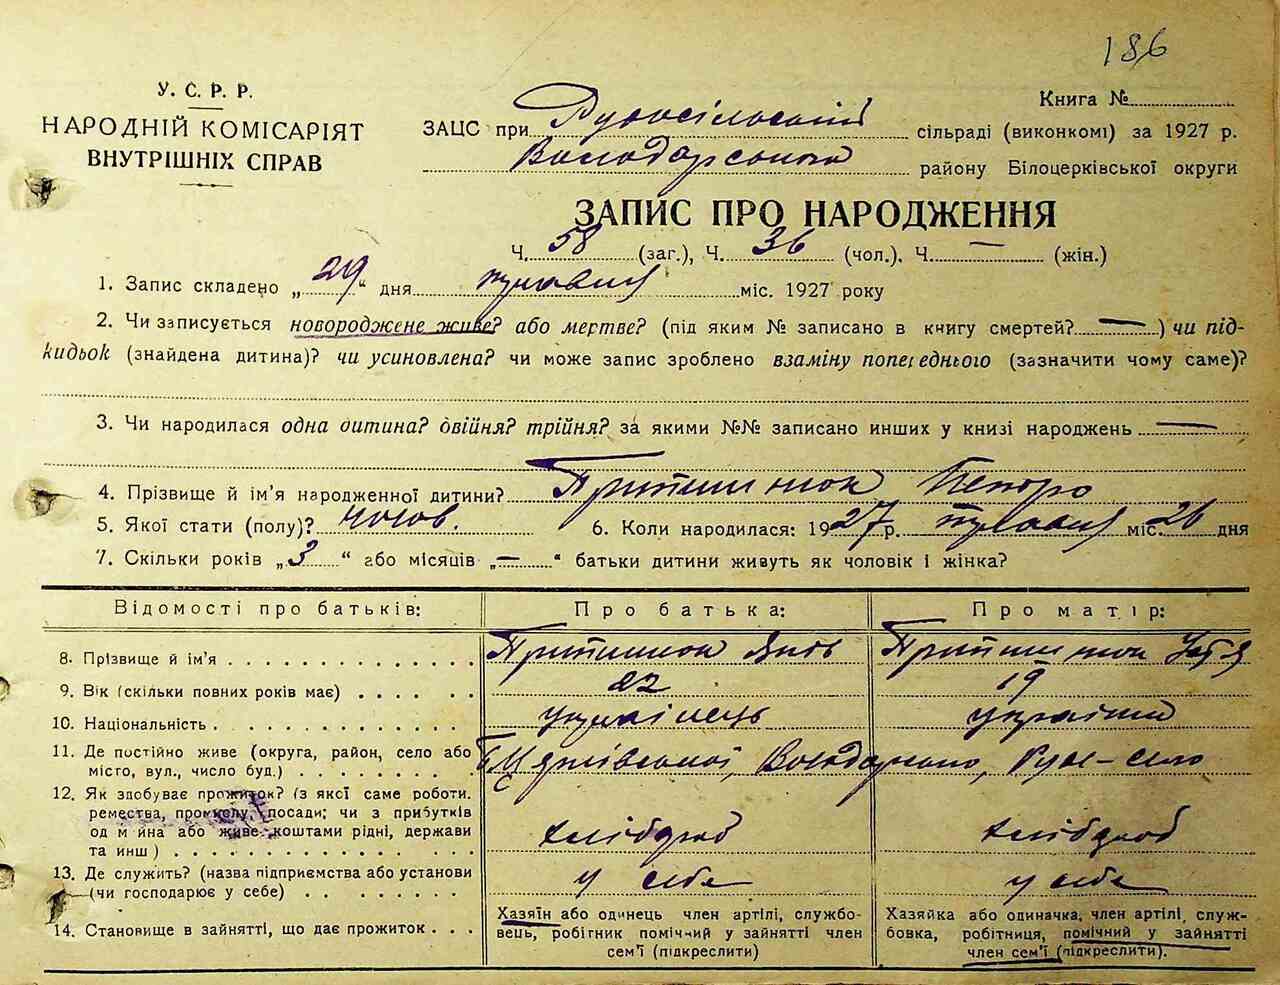 186
У. С. Р. Р.
НАРОДНІЙ КОМІСАРІЯТ
ВНУТРІШНІХ СПРАВ
Книга №
ЗАЦС при Рудосільський сільраді (виконкомі) за 1927 р.
Володарського району Білоцерківської округи
ЗАПИС ПРО НАРОДЖЕННЯ
Ч. 58 (заг.), Ч. 36 (чол.), Ч. — (жін.)
1. Запис складено „29“ дня міс. 1927 року
2. Чи записується новороджене живе? або мертве? (під яким № записано в книгу смертей? —) чи під-
кидьок (знайдена дитина)? чи усиновлена? чи може запис зроблено взаміну попереднього (зазначити чому саме)?
3. Чи народилася одна дитина? двійня? трійня? за якими №№ записано инших у книзі народжень —
4. Прізвище й ім'я народженної дитини? Притишнюк Петро
5. Якої стати (полу)? чолов. 6. Коли народилася: 1927 р. міс. 26 дня
7. Скільки років „3“ або місяців „—“ батьки дитини живуть як чоловік і жінка?
Відомості про батьків: Про батька: Про матір:
8. Прізвище й ім'я Притишнюк Яків Притишнюк
9. Вік (скільки повних років має) 22 19
10. Національність українець українка
11. Де постійно живе (округа, район, село або
місто, вул., число буд.) Б Церківської, Володарського, Руде-село
12. Як здобуває прожиток? (з якої саме роботи.
ремества, промислу, посади; чи з прибутків
од майна або живе коштами рідні, держави
та инш) хлібороб хлібороб
13. Де служить? (назва підприємства або установи
(чи господарює у себе) у себе у себе
14. Становище в зайнятті, що дає прожиток
Хазяїн або одинець член артілі, службо-
вець, робігник помічний у зайнятті член
сем'ї (підкреслити)
Хазяйка або одиначка, член артілі, служ-
бовка, робітниця, помічний у зайнятті
член сем'ї (підкреслити).